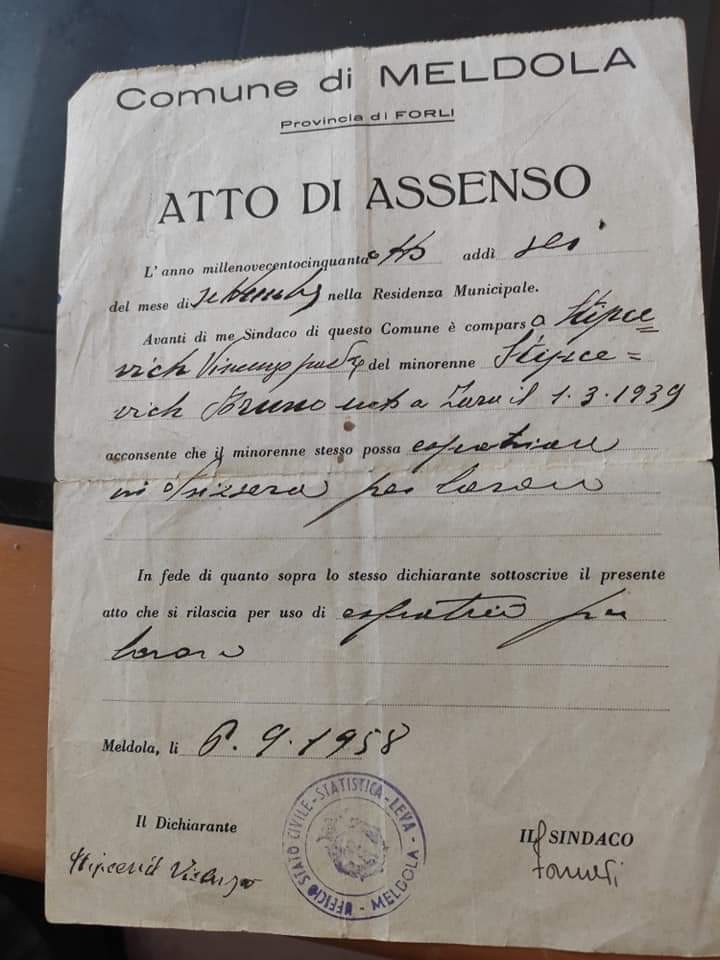 Comune di MELDOLA
Provincia di FORLI
ATTO DI ASSENSO
L'anno millenovecentocinquanta otto addì sei
del mese di settembre nella Residenza Municipale.
Avanti di me Sindaco di questo Comune è compars o Stipce=
vich Vincenzo padre del minorenne Stipce=
vich Bruno nato a Zara il 1.3.1939
acconsente che il minorenne stesso possa espatriare
in Svizzera per lavoro
In fede di quanto sopra lo stesso dichiarante sottoscrive il presente
atto che si rilascia per uso di espatrio per
lavoro
Meldola, li 6.9.1958
Il Dichiarante
IL SINDACO
UFFICIO STATO CIVILE-STATISTICA-LEVA - MELDOLA -